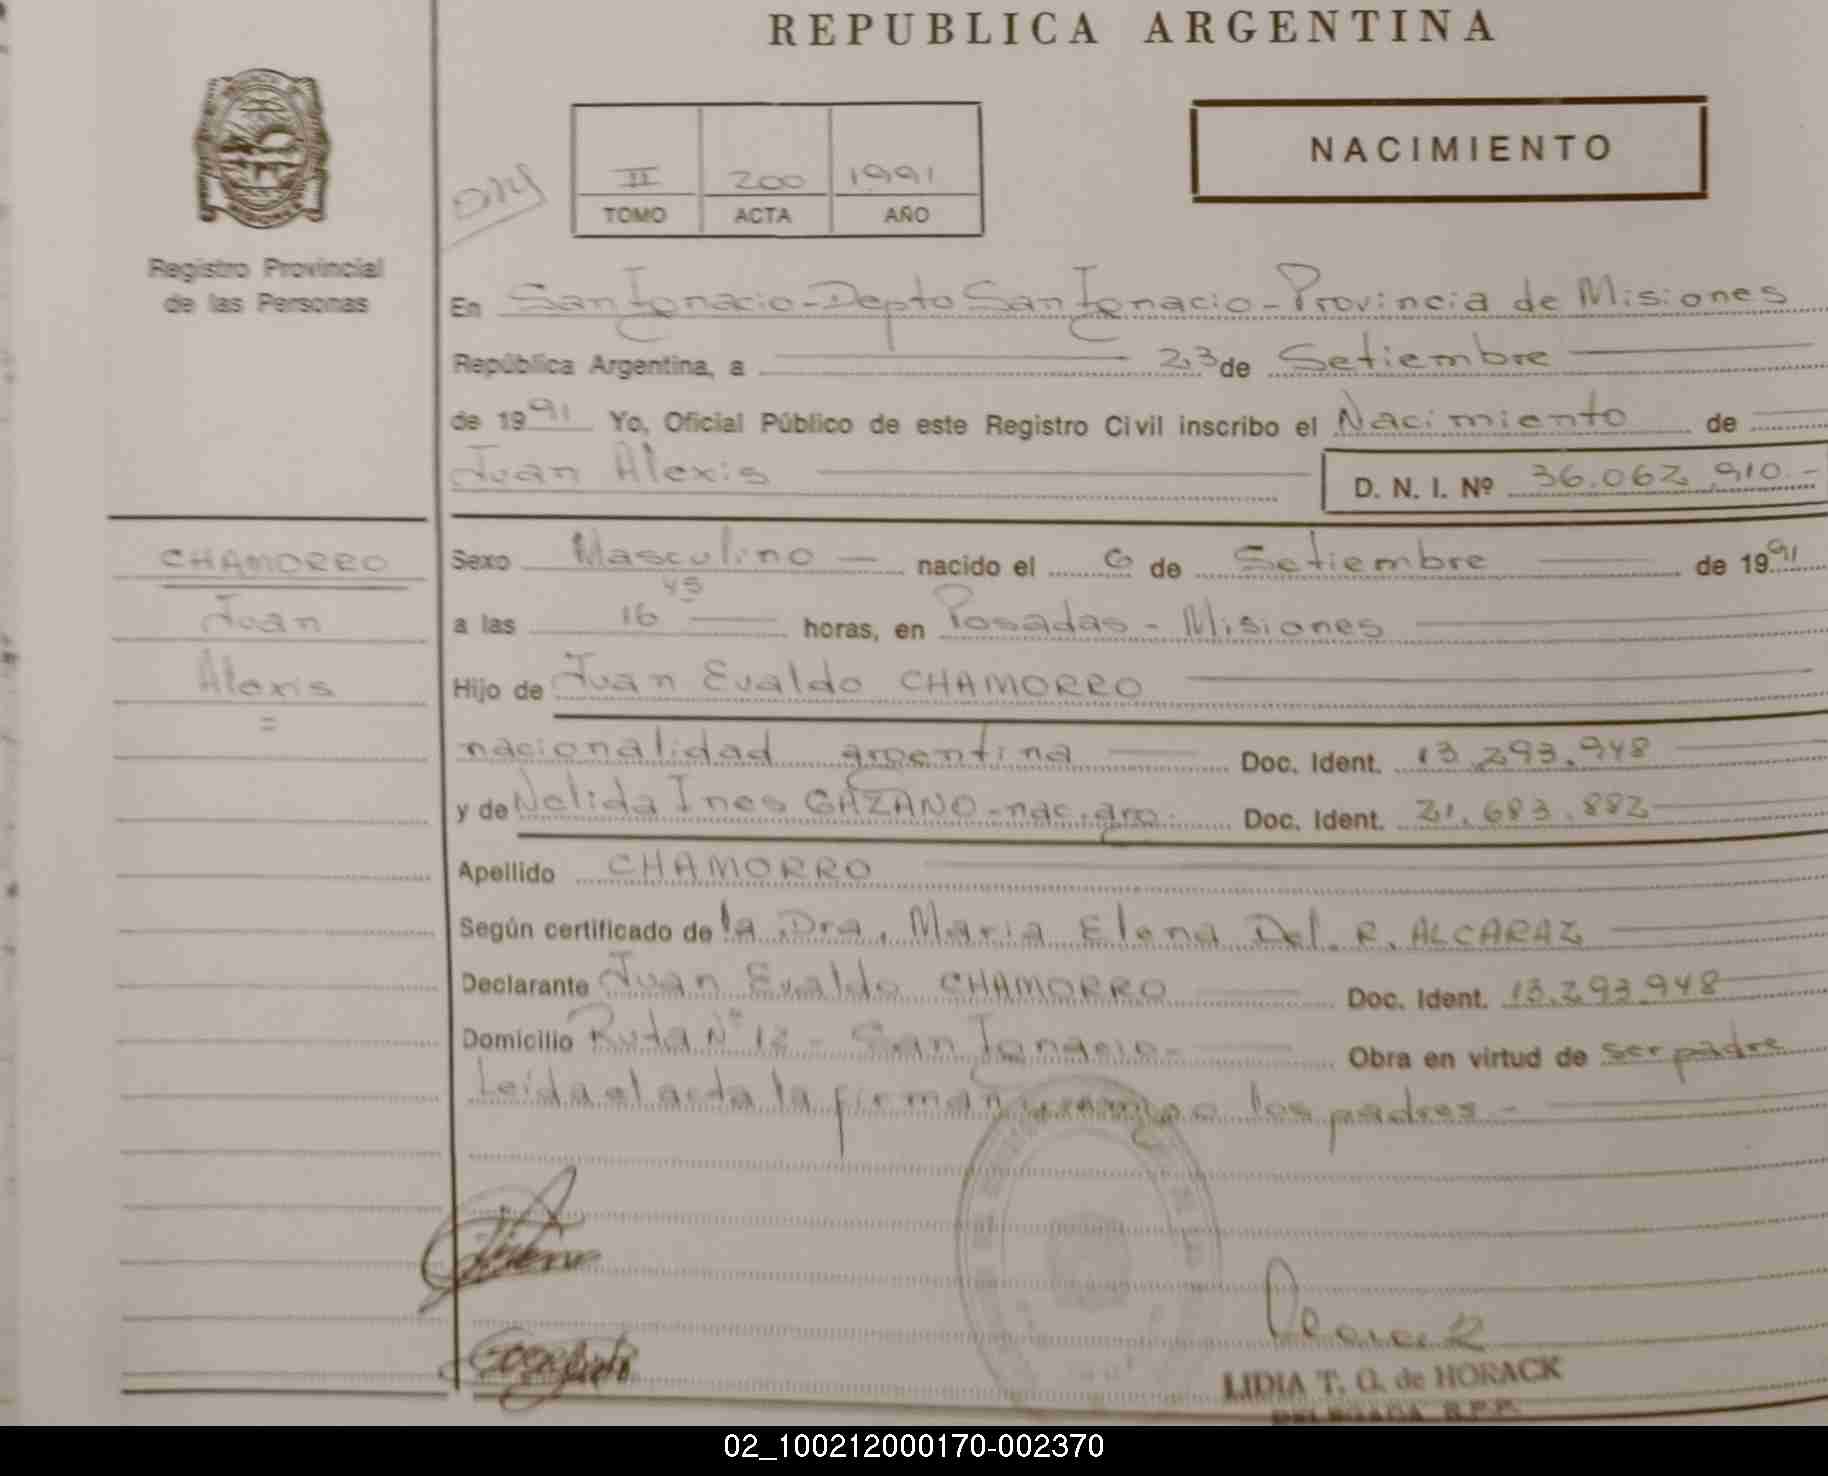 REPUBLICA ARGENTINA
NACIMIENTO
II 200 1991
TOMO ACTA AÑO
Registro Provincial
de las Personas
En San Ignacio - Depto San Ignacio - Provincia de Misiones
República Argentina, a 23 de Setiembre
de 1991 Yo, Oficial Público de este Registro Civil inscribo el Nacimiento de
Juan Alexis D. N. I. Nº 36.062.910.-
CHAMORRO
Juan
Alexis
=
Sexo Masculino nacido el 6 de Setiembre de 1991
a las 16 45 horas, en Posadas - Misiones
Hijo de Juan Evaldo CHAMORRO
nacionalidad argentina Doc. Ident. 13.293.948
y de Nelida Ines GAZANO - nac. arg. Doc. Ident. 21.683.882
Apellido CHAMORRO
Según certificado de la Dra. Maria Elena Del. R. ALCARAZ
Declarante Juan Evaldo CHAMORRO Doc. Ident. 13.293.948
Domicilio Ruta Nº 12 - San Ignacio - Obra en virtud de ser padre
Leida el acta la firman conmigo los padres -
LIDIA T. G. de HORACK
DELEGADA R.P.P.
02_100212000170-002370